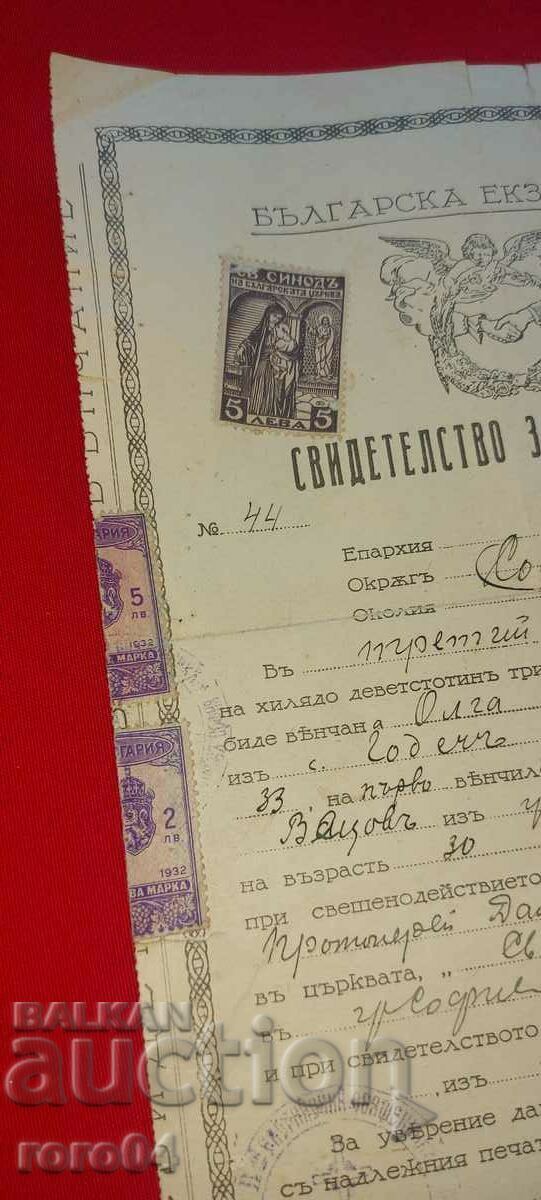 БЪЛГАРСКА ЕКЗ
СВ. СИНОДЪ
НА БЪЛГАРСКАТА ЦЪРКВА
5 ЛЕВА 5
СВИДЕТЕЛСТВО З
№ 44
Епархия
Окрѫгъ Со
Околия
АРИЯ
5
ЛВ.
1932
ВА МАРКА
Въ третий
на хилядо деветстотинъ три
биде вѣнчана Олга
изъ с. Годечъ
33, на първо вѣнчило
Вацовъ изъ
на възрасть 30
ГАРИЯ
2
ЛВ.
1932
ВА МАРКА
при свещенодействието
Протоиерей
въ църквата, „ Св
въ гр София
и при свидетелството
, изъ
За увѣрение да
съ надлежния печат
BALKAN
auction
roro04